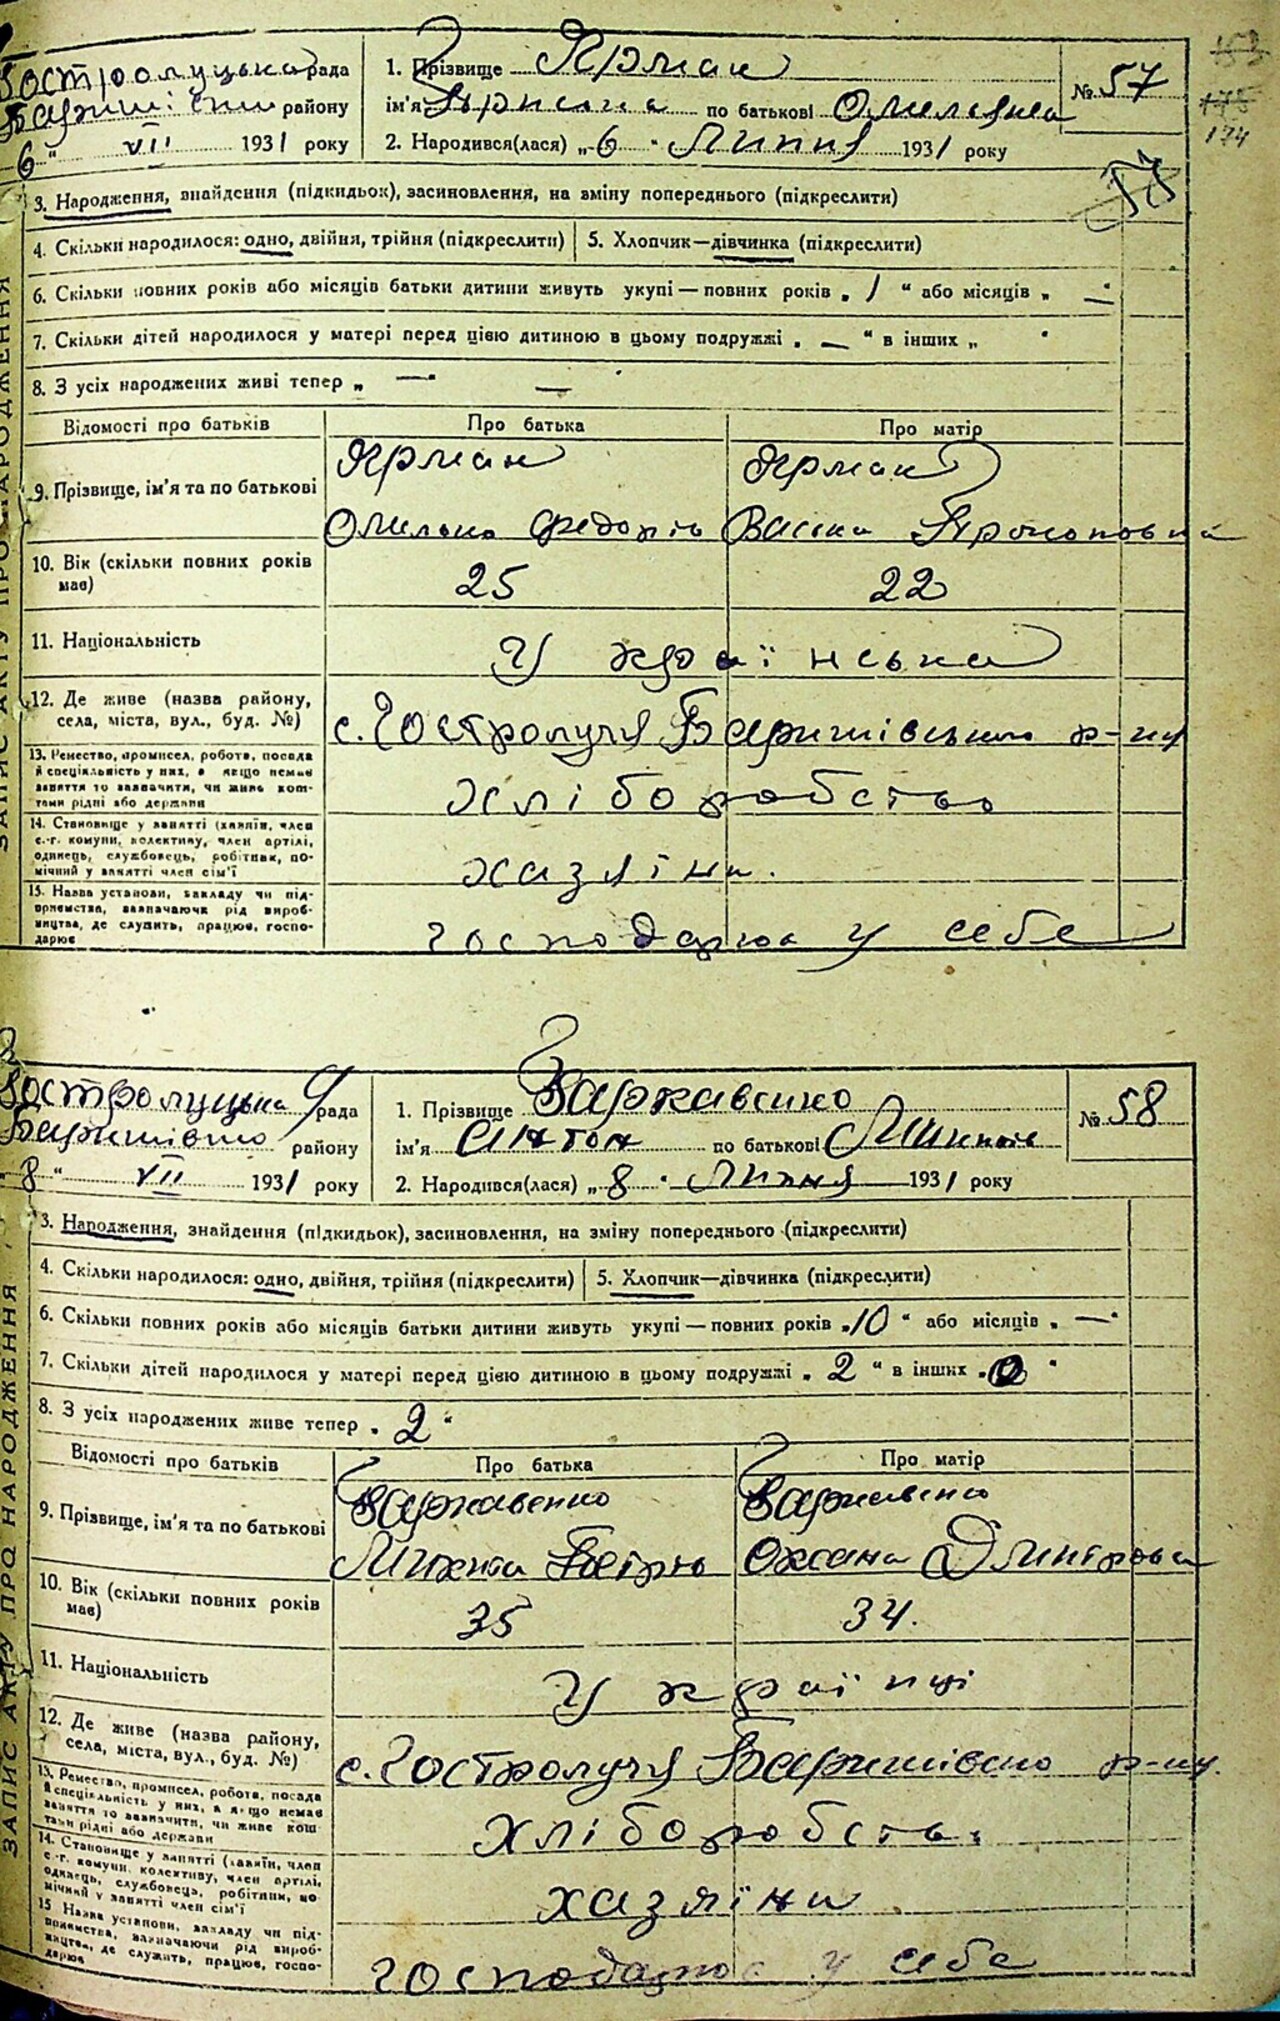 Гостролуцька рада
району
6 " VII 1931 року
1. Прізвище Ярмак
ім'я по батькові
2. Народився(лася) „ 6 " Липня 1931 року
№ 57
153
175
174
3. Народження, знайдення (підкидьок), засиновлення, на зміну попереднього (підкреслити)
4. Скільки народилося: одно, двійня, трійня (підкреслити)
5. Хлопчик—дівчинка (підкреслити)
6. Скільки повних років або місяців батьки дитини живуть укупі — повних років „ 1 " або місяців „ — "
7. Скільки дітей народилося у матері перед цією дитиною в цьому подружжі „ — " в інших „ "
8. З усіх народжених живі тепер „ — " —
Відомості про батьків
Про батька
Про матір
9. Прізвище, ім'я та по батькові
Ярмак
Омелько Федорів
Ярмак
Васька Прокоповна
10. Вік (скільки повних років
має)
25
22
11. Національність
Українська
12. Де живе (назва району,
села, міста, вул., буд. №)
с. Гостролуччя Баришівського р-ну
13. Ремество, промисел, робота, посада
й спеціяльність у них, а якщо немає
заняття то зазначити, чи живе кош-
тами рідні або держави
Хліборобство
14. Становище у занятті (хазяїн, член
с.-г. комуни, колективу, член артілі,
одинець, службовець, робітник, по-
мічний у занятті член сім'ї
хазяїни.
15. Назва установи, закладу чи під-
приємства, зазначаючи рід вироб-
ництва, де служить, працює, госпо-
дарює
господарює у себе
ЗАПИС АКТУ ПРО НАРОДЖЕННЯ
Гостролуцька рада
району
8 " VII 1931 року
1. Прізвище Заржавенко
ім'я Антон по батькові
2. Народився(лася) „ 8 " Липня 1931 року
№ 58
3. Народження, знайдення (підкидьок), засиновлення, на зміну попереднього (підкреслити)
4. Скільки народилося: одно, двійня, трійня (підкреслити)
5. Хлопчик—дівчинка (підкреслити)
6. Скільки повних років або місяців батьки дитини живуть укупі — повних років „ 10 " або місяців „ — "
7. Скільки дітей народилося у матері перед цією дитиною в цьому подружжі „ 2 " в інших „ 0 "
8. З усіх народжених живе тепер „ 2 "
Відомості про батьків
Про батька
Про матір
9. Прізвище, ім'я та по батькові
Заржавенко
Микита Петрів
Заржавенко
Оксана Дмитрова
10. Вік (скільки повних років
має)
35
34.
11. Національність
Українці
12. Де живе (назва району,
села, міста, вул., буд. №)
с. Гостролуччя р-ну.
13. Ремество, промисел, робота, посада
й спеціяльність у них, а якщо немає
заняття то зазначити, чи живе кош-
тами рідні або держави
хліборобств.
14. Становище у занятті (хазяїн, член
с.-г. комуни, колективу, член артілі,
одинець, службовець, робітник, по-
мічний у занятті член сім'ї
хазяїни
15 Назва установи, закладу чи під-
приємства, зазначаючи рід вироб-
ництва, де служить, працює, госпо-
дарює
господарює у себе
ЗАПИС АКТУ ПРО НАРОДЖЕННЯ